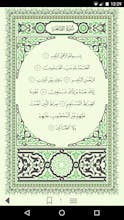 12:29
سورة الفاتحة
بسم الله الرحمن الرحيم
الحمد لله رب العالمين
الرحمن الرحيم ملك يوم الدين
إياك نعبد وإياك نستعين
اهدنا الصراط المستقيم
صراط الذين أنعمت عليهم
غير المغضوب عليهم
ولا الضالين